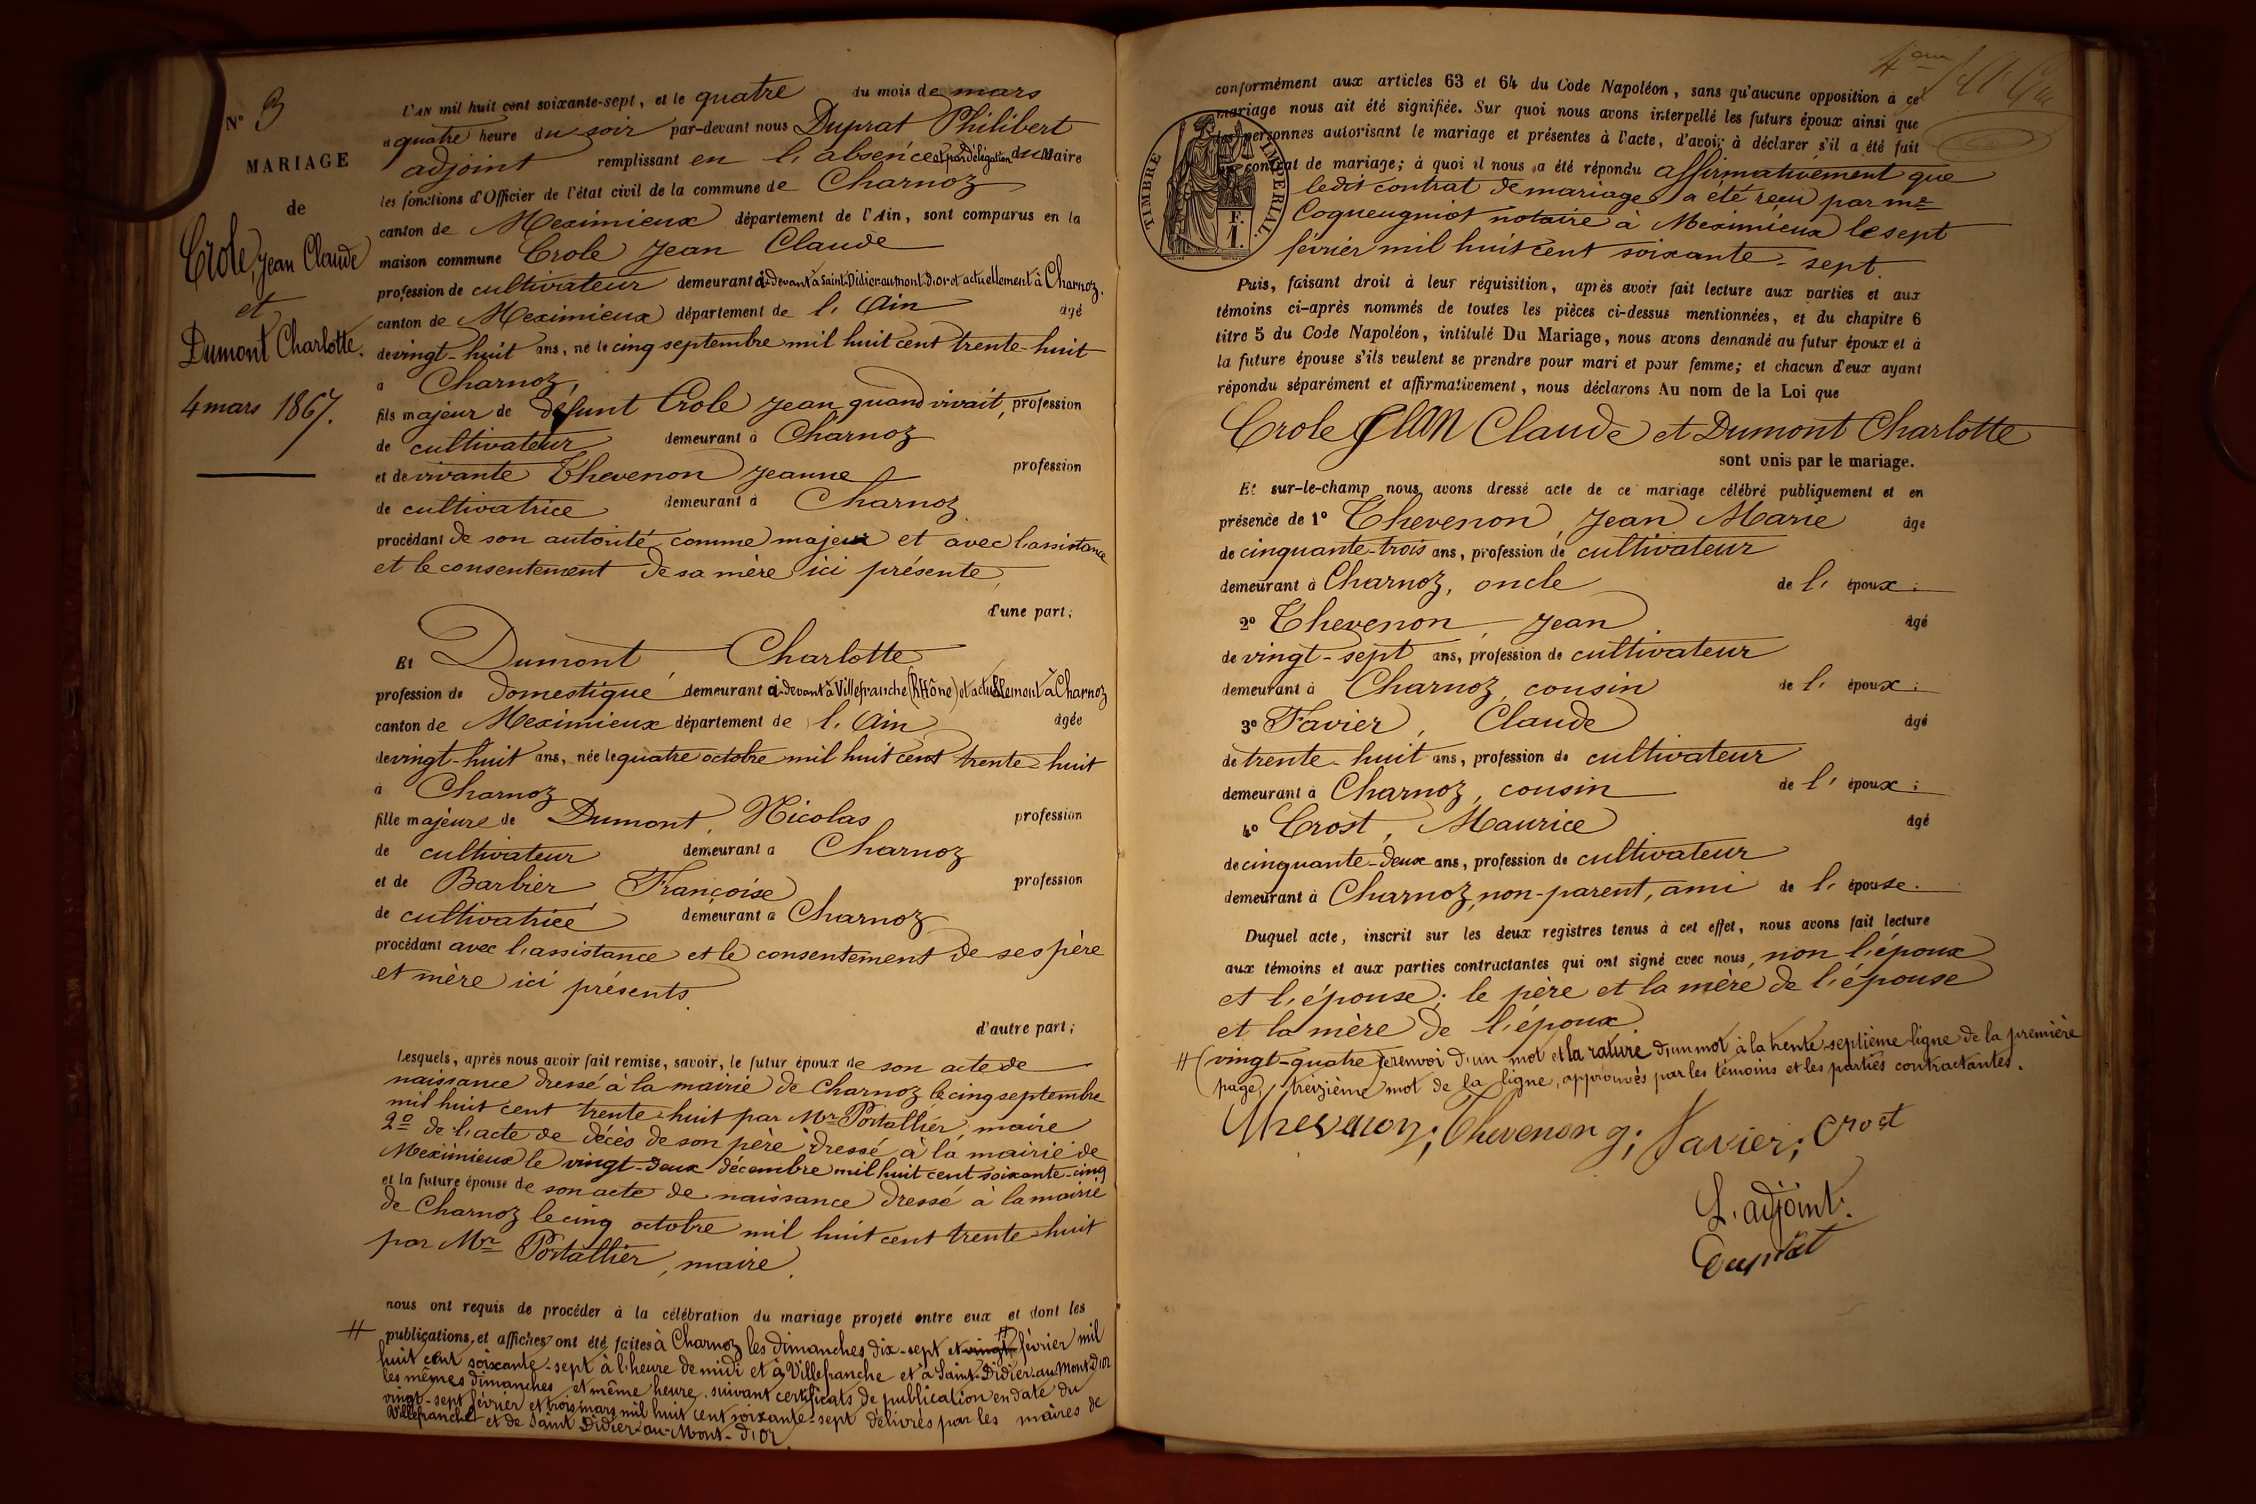 N° 3
MARIAGE
de
Crole, Jean Claude
et
Dumont Charlotte.
4 mars 1867.
L'AN mil huit cent soixante-sept, et le quatre du mois de mars
à quatre heure du soir par-devant nous Duprat Philibert
adjoint remplissant en l'absence et par délégation du Maire
les fonctions d'Officier de l'état civil de la commune de Charnoz
canton de Meximieux département de l'Ain, sont comparus en la
maison commune Crole Jean Claude
profession de cultivateur demeurant ci-devant à Saint-Didier-au-mont-D'or et actuellement à Charnoz.
canton de Meximieux département de l'Ain âgé
de vingt-huit ans, né le cinq septembre mil huit cent trente-huit
à Charnoz,
fils majeur de défunt Crole Jean quand vivait, profession
de cultivateur demeurant à Charnoz
et de vivante Thevenon Jeanne profession
de cultivatrice demeurant à Charnoz
procédant de son autorité comme majeur et avec l'assistance
et le consentement de sa mère ici présente,
d'une part;
Et Dumont Charlotte
profession de domestique demeurant ci-devant à Villefranche (Rhône) et actuellement à Charnoz
canton de Meximieux département de l'Ain âgée
de vingt-huit ans, née le quatre octobre mil huit cent trente-huit
à Charnoz
fille majeure de Dumont, Nicolas profession
de cultivateur demeurant à Charnoz
et de Barbier, Françoise profession
de cultivatrice demeurant à Charnoz
procédant avec l'assistance et le consentement de ses père
et mère ici présents.
d'autre part;
Lesquels, après nous avoir fait remise, savoir, le futur époux de son acte de
naissance dressé à la mairie de Charnoz le cinq septembre
mil huit cent trente-huit par Mr Portallier, maire
2° de l'acte de décès de son père dressé à la mairie de
Meximieux le vingt-deux décembre mil huit cent soixante-cinq
et la future épouse de son acte de naissance dressé à la mairie
de Charnoz le cinq octobre mil huit cent trente-huit
par Mr Portallier, maire.
nous ont requis de procéder à la célébration du mariage projeté entre eux et dont les
# publications et affiches ont été faites à Charnoz les dimanches dix-sept et vingt # février mil
huit cent soixante-sept à l'heure de midi et à Villefranche et à Saint-Didier-au-Mont-D'or
les mêmes dimanches et même heure, suivant certificats de publication en date du
vingt-sept février et trois mars mil huit cent soixante-sept délivrés par les maires de
Villefranche et de Saint Didier-au-Mont-d'or.
conformément aux articles 63 et 64 du Code Napoléon, sans qu'aucune opposition à ce
mariage nous ait été signifiée. Sur quoi nous avons interpellé les futurs époux ainsi que
les personnes autorisant le mariage et présentes à l'acte, d'avoir à déclarer s'il a été fait
contrat de mariage; à quoi il nous a été répondu affirmativement que
ledit contrat de mariage a été reçu par me
Coqueugniot notaire à Meximieux le sept
février mil huit cent soixante-sept.
TIMBRE IMPERIAL.
F.
1.
Puis, faisant droit à leur réquisition, après avoir fait lecture aux parties et aux
témoins ci-après nommés de toutes les pièces ci-dessus mentionnées, et du chapitre 6
titre 5 du Code Napoléon, intitulé Du Mariage, nous avons demandé au futur époux et à
la future épouse s'ils veulent se prendre pour mari et pour femme; et chacun d'eux ayant
répondu séparément et affirmativement, nous déclarons Au nom de la Loi que
Crole Jean Claude et Dumont Charlotte
sont unis par le mariage.
Et sur-le-champ nous avons dressé acte de ce mariage célébré publiquement et en
présence de 1° Thevenon, Jean Marie âge
de cinquante-trois ans, profession de cultivateur
demeurant à Charnoz, oncle de l'époux;
2° Thevenon, Jean âgé
de vingt-sept ans, profession de cultivateur
demeurant à Charnoz, cousin de l'époux;
3° Favier, Claude âgé
de trente-huit ans, profession de cultivateur
demeurant à Charnoz, cousin de l'époux;
4° Crost, Maurice âgé
de cinquante-deux ans, profession de cultivateur
demeurant à Charnoz, non-parent, ami de l'épouse.
Duquel acte, inscrit sur les deux registres tenus à cet effet, nous avons fait lecture
aux témoins et aux parties contractantes qui ont signé avec nous, non l'époux
et l'épouse; le père et la mère de l'épouse
et la mère de l'époux.
# (vingt-quatre) le renvoi d'un mot et la rature d'un mot à la trente-septième ligne de la première
page, treizième mot de la ligne, approuvés par les témoins et les parties contractantes.
Thevenon; Thevenon j; Favier; Crost
L'adjoint.
Duprat